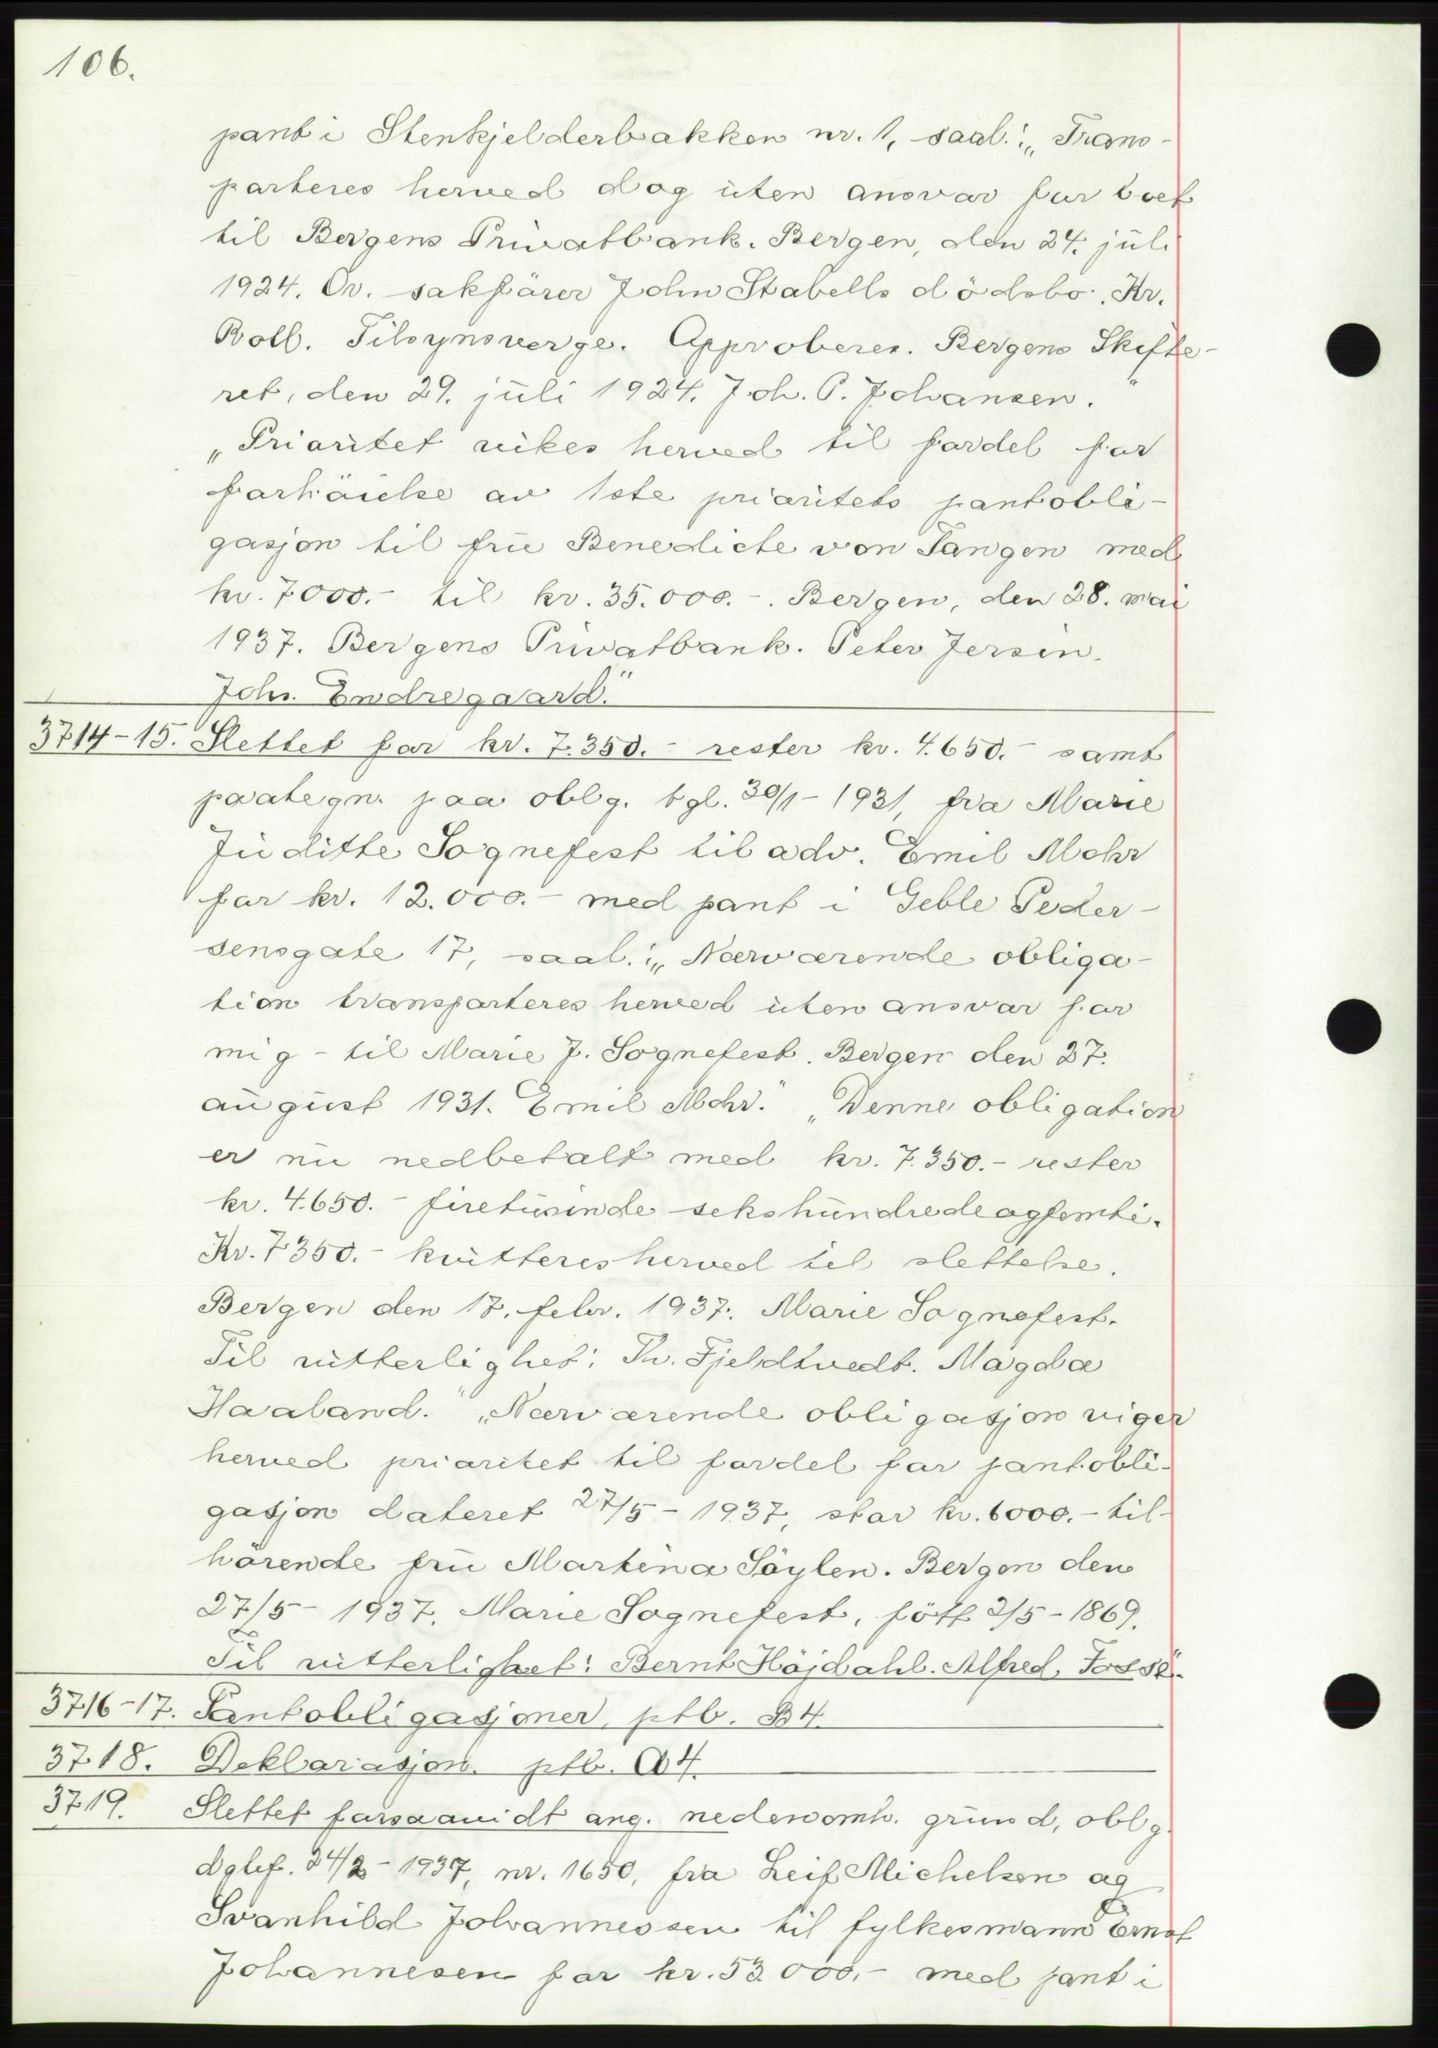 106.
pant i Stenkjelderbakken nr. 1, saal.: „Trans-
porteres herved dog uten ansvar for boet
til Bergens Privatbank. Bergen, den 24. juli
1924. Ov. sakförer John Stabells dödsbo. Kr.
Roll. Tilsynsverge. Approberes. Bergens Skifte-
ret, den 29. juli 1924. Joh. P. Johansen."
„Prioritet vikes herved til fordel for
forhöielse av 1ste prioritets pantobli-
gasjon til frü Benedicte von Tangen med
kr. 7000.- til kr. 35.000.-. Bergen, den 28. mai
1937. Bergens Privatbank. Peter Jersin.
Joh. Endregaard."
3714-15. Slettet for kr. 7.350.- rester kr. 4.650.- samt
paategn. paa oblg. tgl. 30/1-1931, fra Marie
Juditte Sognefest til adv. Emil Mohr
for kr. 12.000.- med pant i Geble Peder-
sensgate 17, saal.: „Nærværende obliga-
tion transporteres herved üten ansvar for
mig - til Marie J. Sognefest. Bergen den 27.
august 1931. Emil Mohr." „Denne obligation
er nu nedbetalt med kr. 7.350.- rester
kr. 4.650.- firetusinde sekshundredeogfemti.
Kr. 7350.- kvitteres herved til slettelse.
Bergen den 17. febr. 1937. Marie Sognefest.
Til vitterlighet: Th. Fjeldtvedt. Magda
Haaland." „Nærværende obligasjon viger
herved prioritet til fordel for pantobli-
gasjon dateret 27/5-1937, stor kr. 6000.- til-
hörende frü Martina Söylen. Bergen den
27/5-1937. Marie Sognefest, fött 2/5-1869.
Til vitterlighet: Bernt Höjdahl. Alfred. Fosse".
3716-17. Pantobligasjoner, ptb. B4.
3718. Deklarasjon. ptb. A4.
3719. Slettet forsaavidt ang. nedenomh. grund, oblg.
dglef. 24/2-1937, nr. 1650, fra Leif Michelsen og
Svanhild Johannessen til fylkesmann Ernst
Johannesen for kr. 53.000.- med pant i